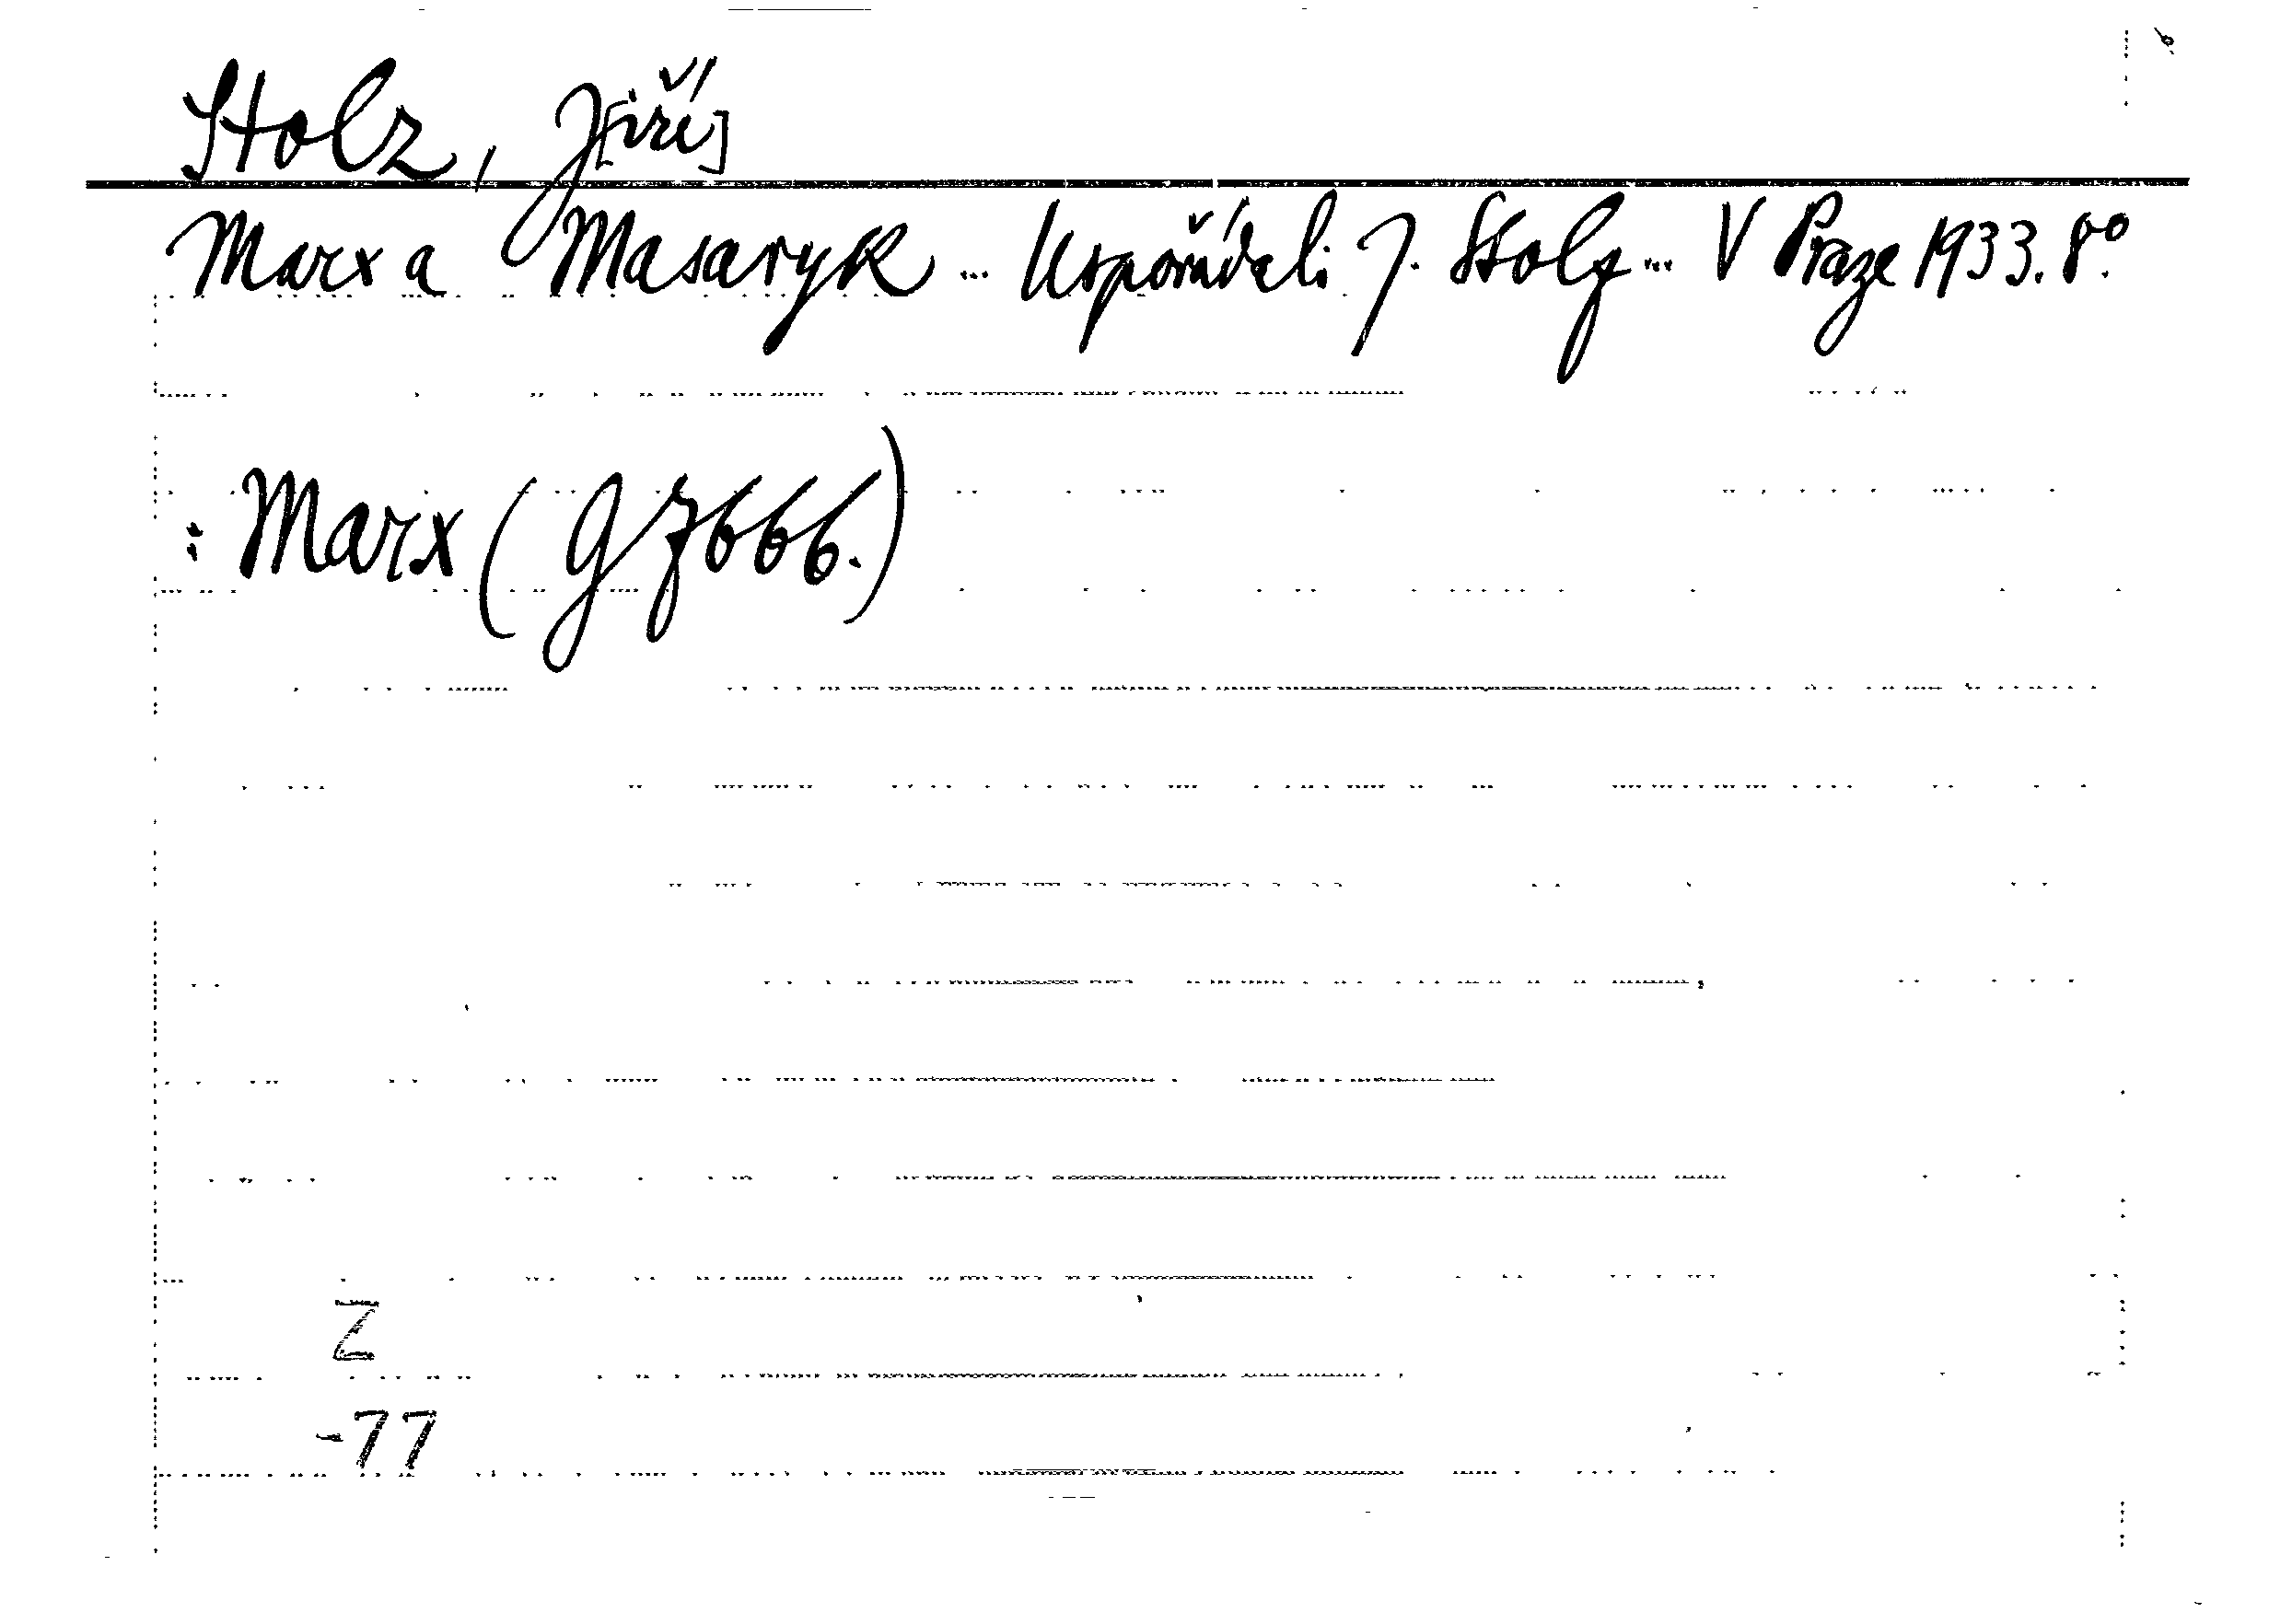 Stolz, J[iří]
Marx a Masaryk ... Uspořádali J. Stolz ... V Praze 1933. 8°.
: Marx (g 7666.)
Z
-77